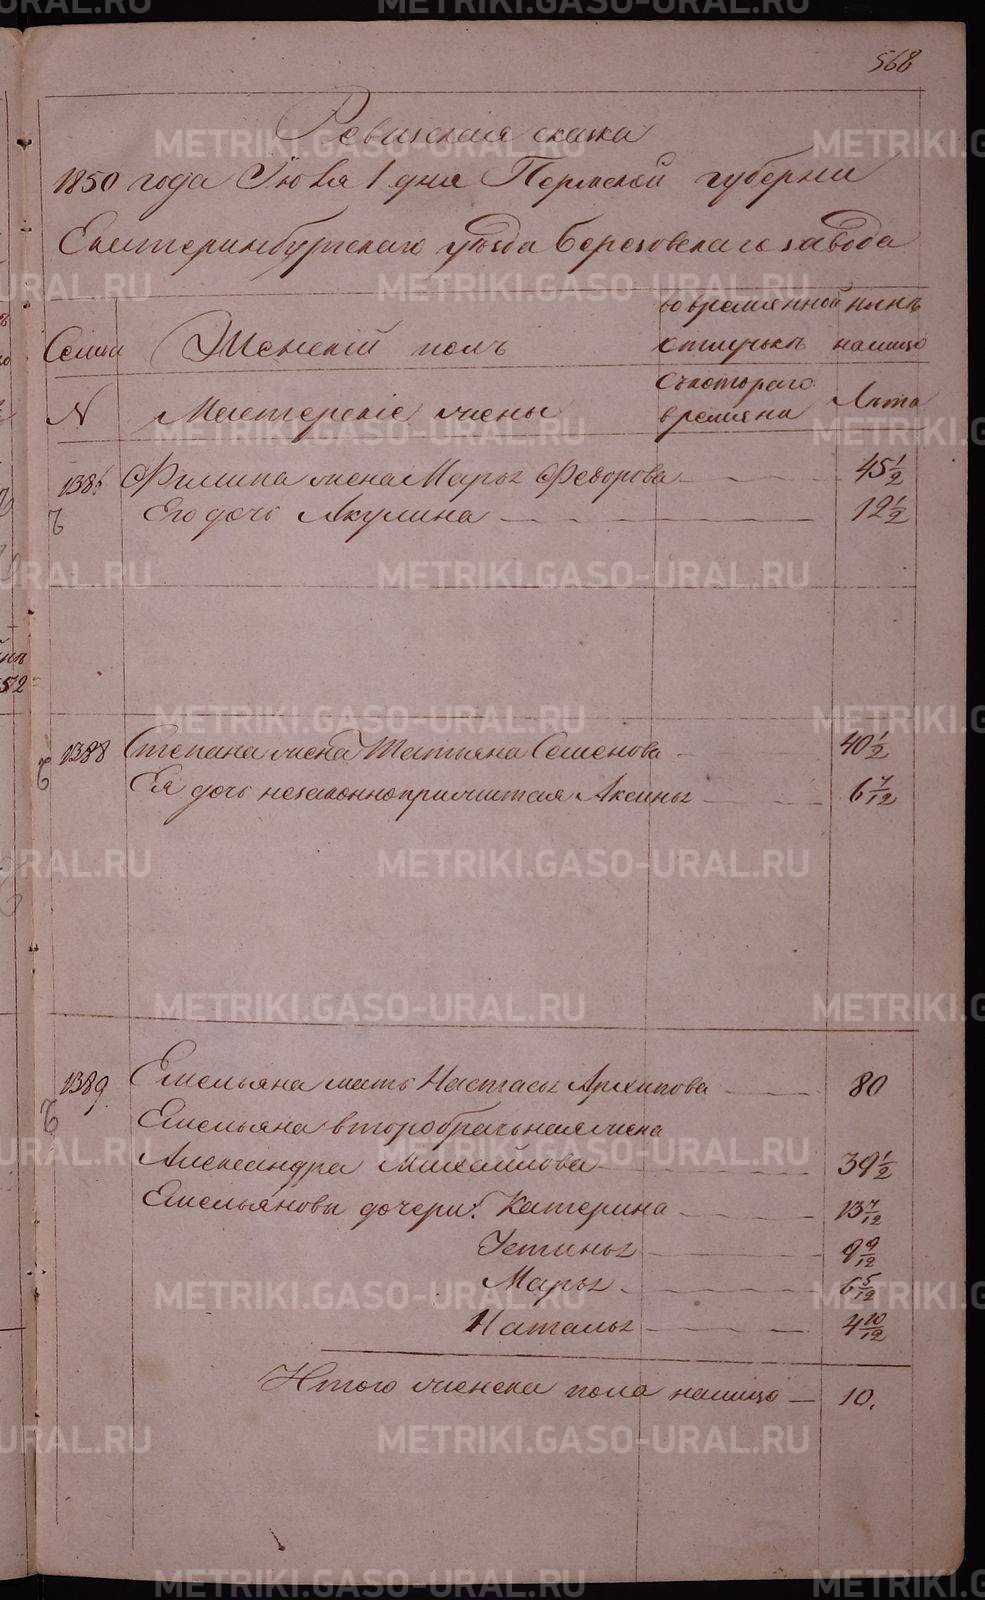 568
Ревизская сказка
1850 года Іюля 1 дня Пермской губернии
Екатеринбургскаго уѣзда Березовскаго завода
Семьи
Женскій полъ
во временной отлучькѣ
нынѣ налицо
N
Мастерскіе жены
Съ котораго времяни
Лѣта
1386 Филипа жена Марья Федорова 45 1/2
Его дочь Акулина 12 1/2
1388 Степана жена Татьяна Семенова 40 1/2
Ея дочь незаконноприжитая Аксинья 6 7/12
1389 Емельяна мать Настасья Архипова 80
Емельяна второбрачьная жена
Александра Михайлова 39 1/2
Емельяновы дочери: Катерина 13 7/12
Устинья 9 9/12
Марья 6 5/12
Наталья 4 10/12
Итого женска пола налицо 10.
METRIKI.GASO-URAL.RU